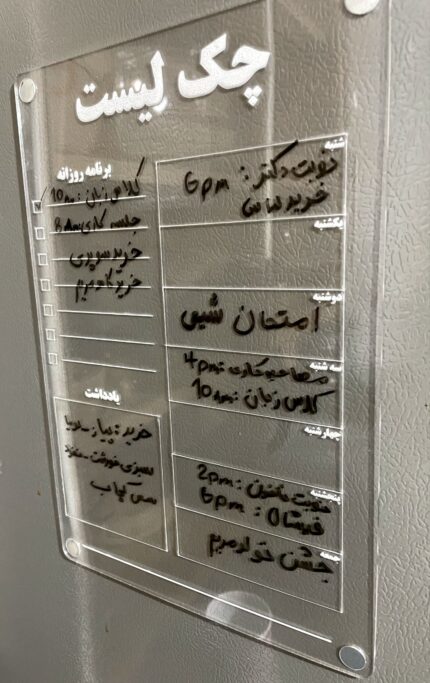 چک لیست
شنبه
نوبت دکتر: 6pm
خرید لباس
یکشنبه
دوشنبه
امتحان شیمی
سه شنبه
مصاحبه کاری: 4pm
کلاس زبان: 10am
چهارشنبه
پنجشنبه
نوبت ناخن: 2pm
6pm :
جمعه
جشن تولد مریم
برنامه روزانه
کلاس زبان: 10am
جلسه کاری 8am
خرید سوپری
خرید کادو مریم
یادداشت
خرید: پیاز - لوبیا
سبزی خورشت -